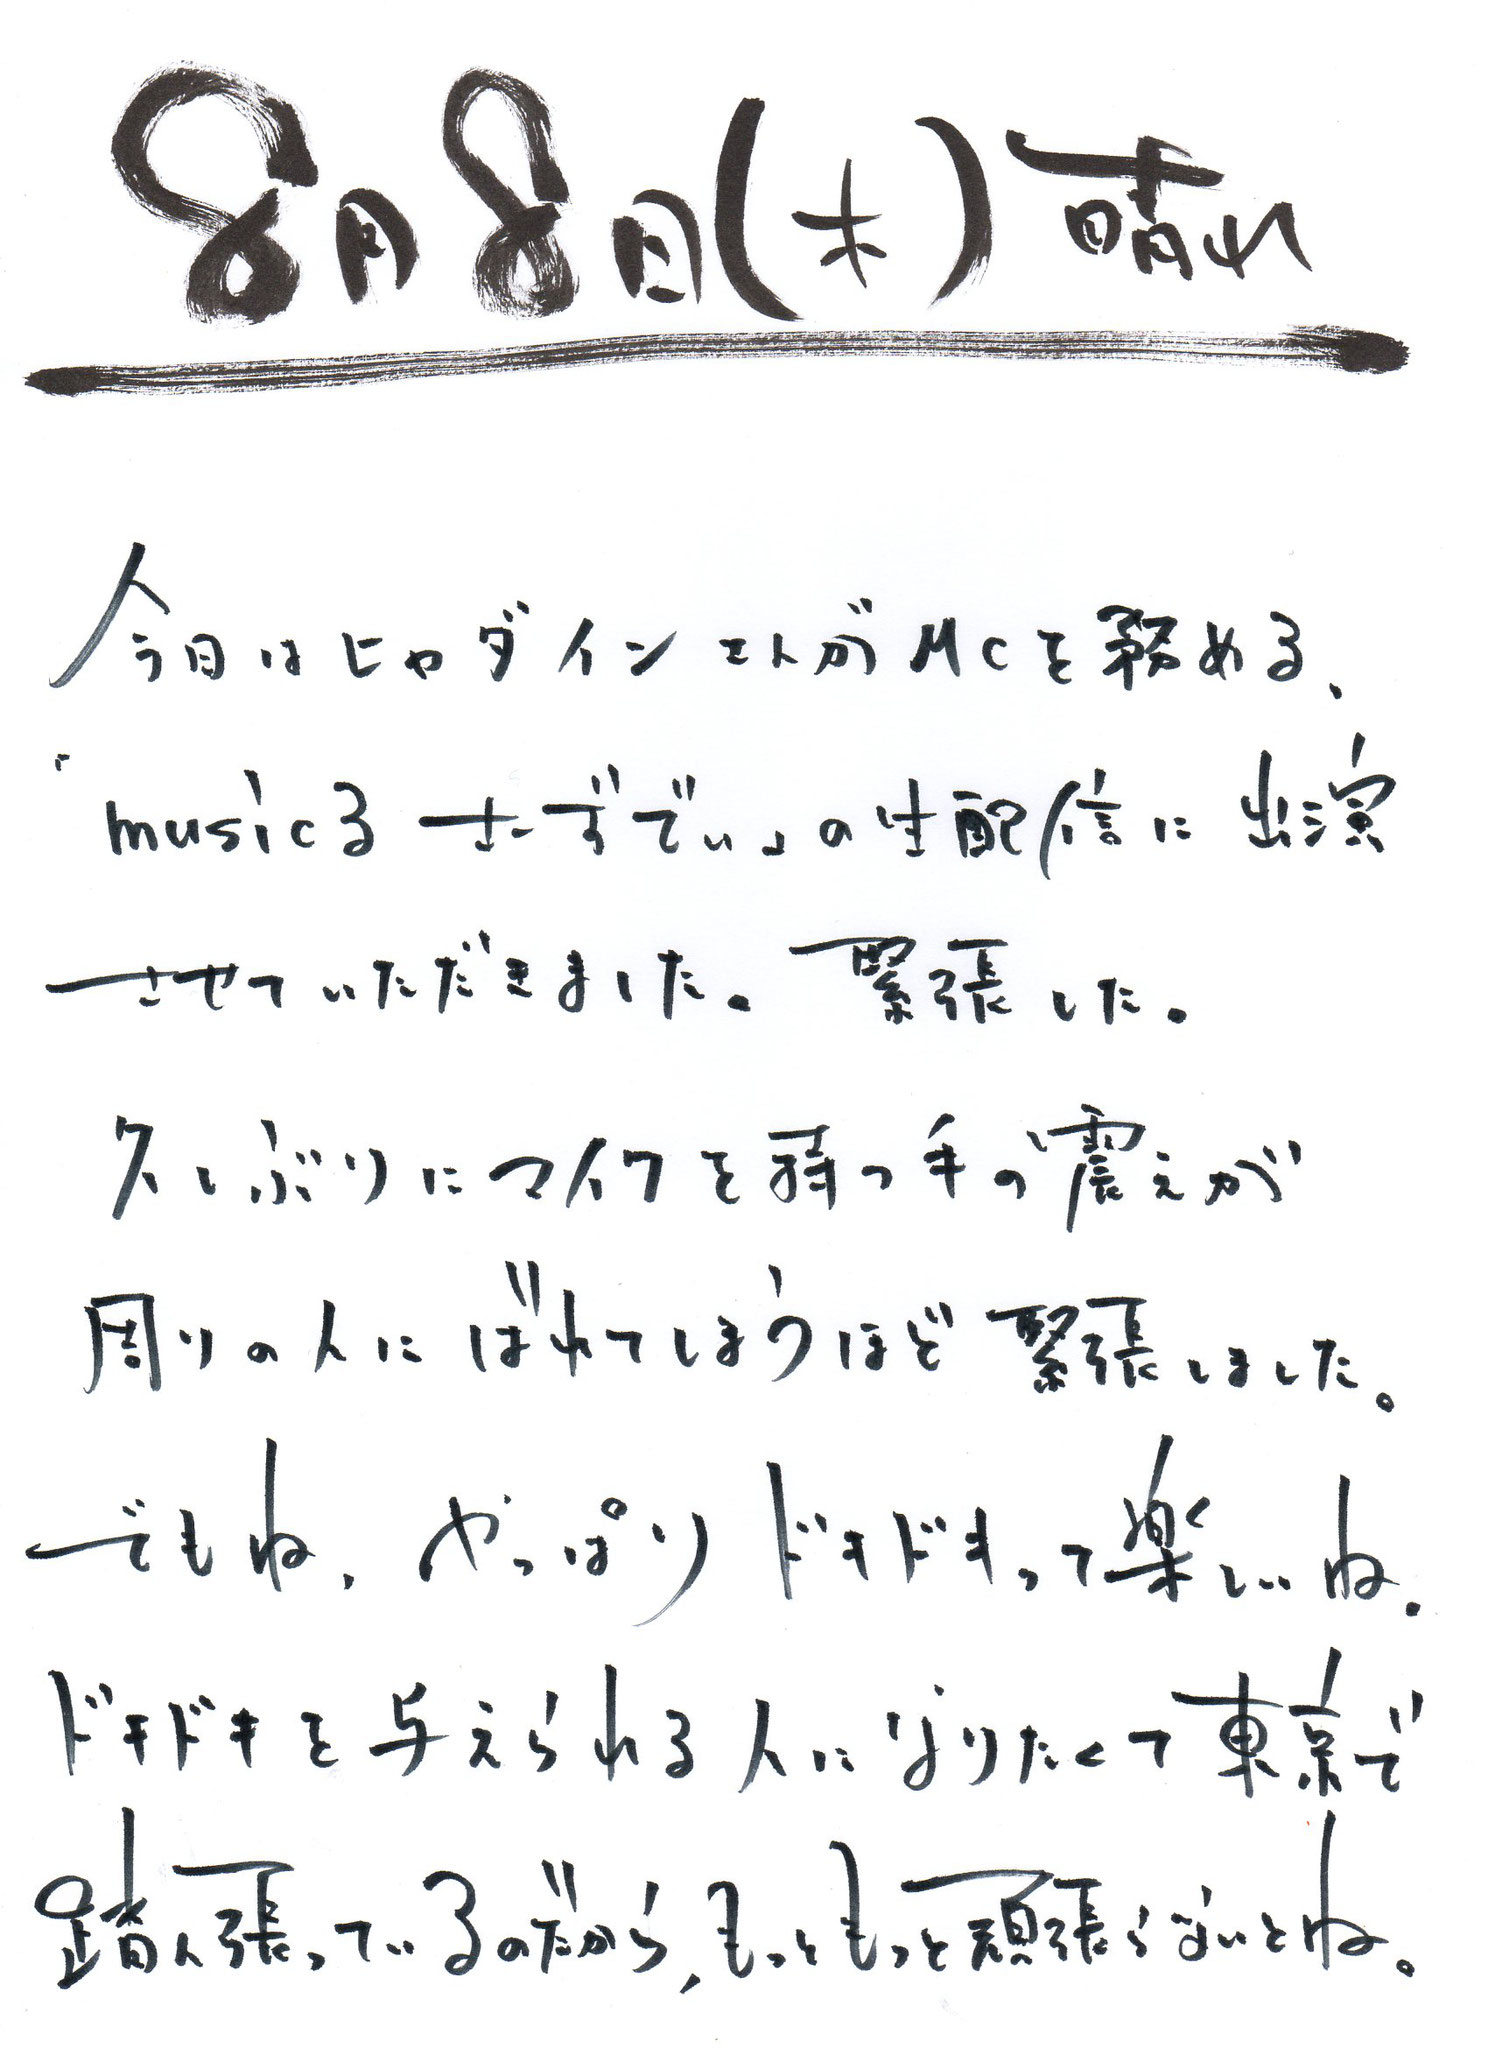 8月8日(木)晴れ
今日はヒャダインさんがMCを務める、
「musicるさーずでぃ」の生配信に出演
させていただきました。緊張した。
久しぶりにマイクを持つ手の震えが
周りの人にばれてしまうほど緊張しました。
でもね、やっぱりドキドキって楽しいね。
ドキドキを与えられる人になりたくて東京で
踏ん張っているのだから、もっともっと頑張らないとね。